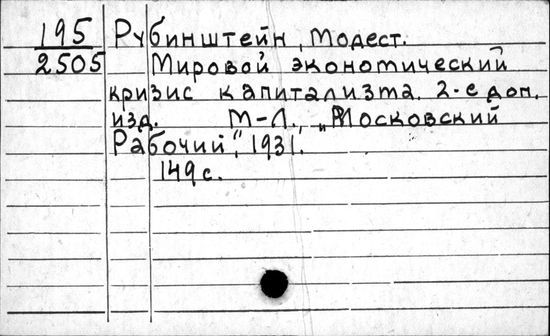 195 Рубинштейн, Модест.
2505 Мировой экономический
кризис капитализма. 2-е доп.
изд. М-Л., „Московский
Рабочий", 1931.
149 с.